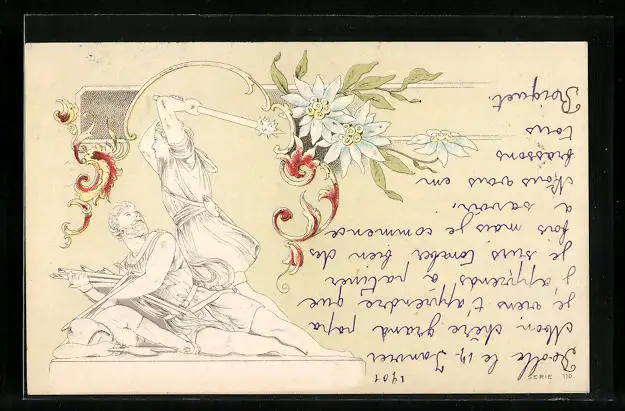 le 14 Janvier
1901
Mon chère grand papa
je viens t'apprendre que
j'apprends a patiner
je suis tomber bien des
fois mais je commence
a savoir.
Nous vous em
brassons
tous
SERIE 110